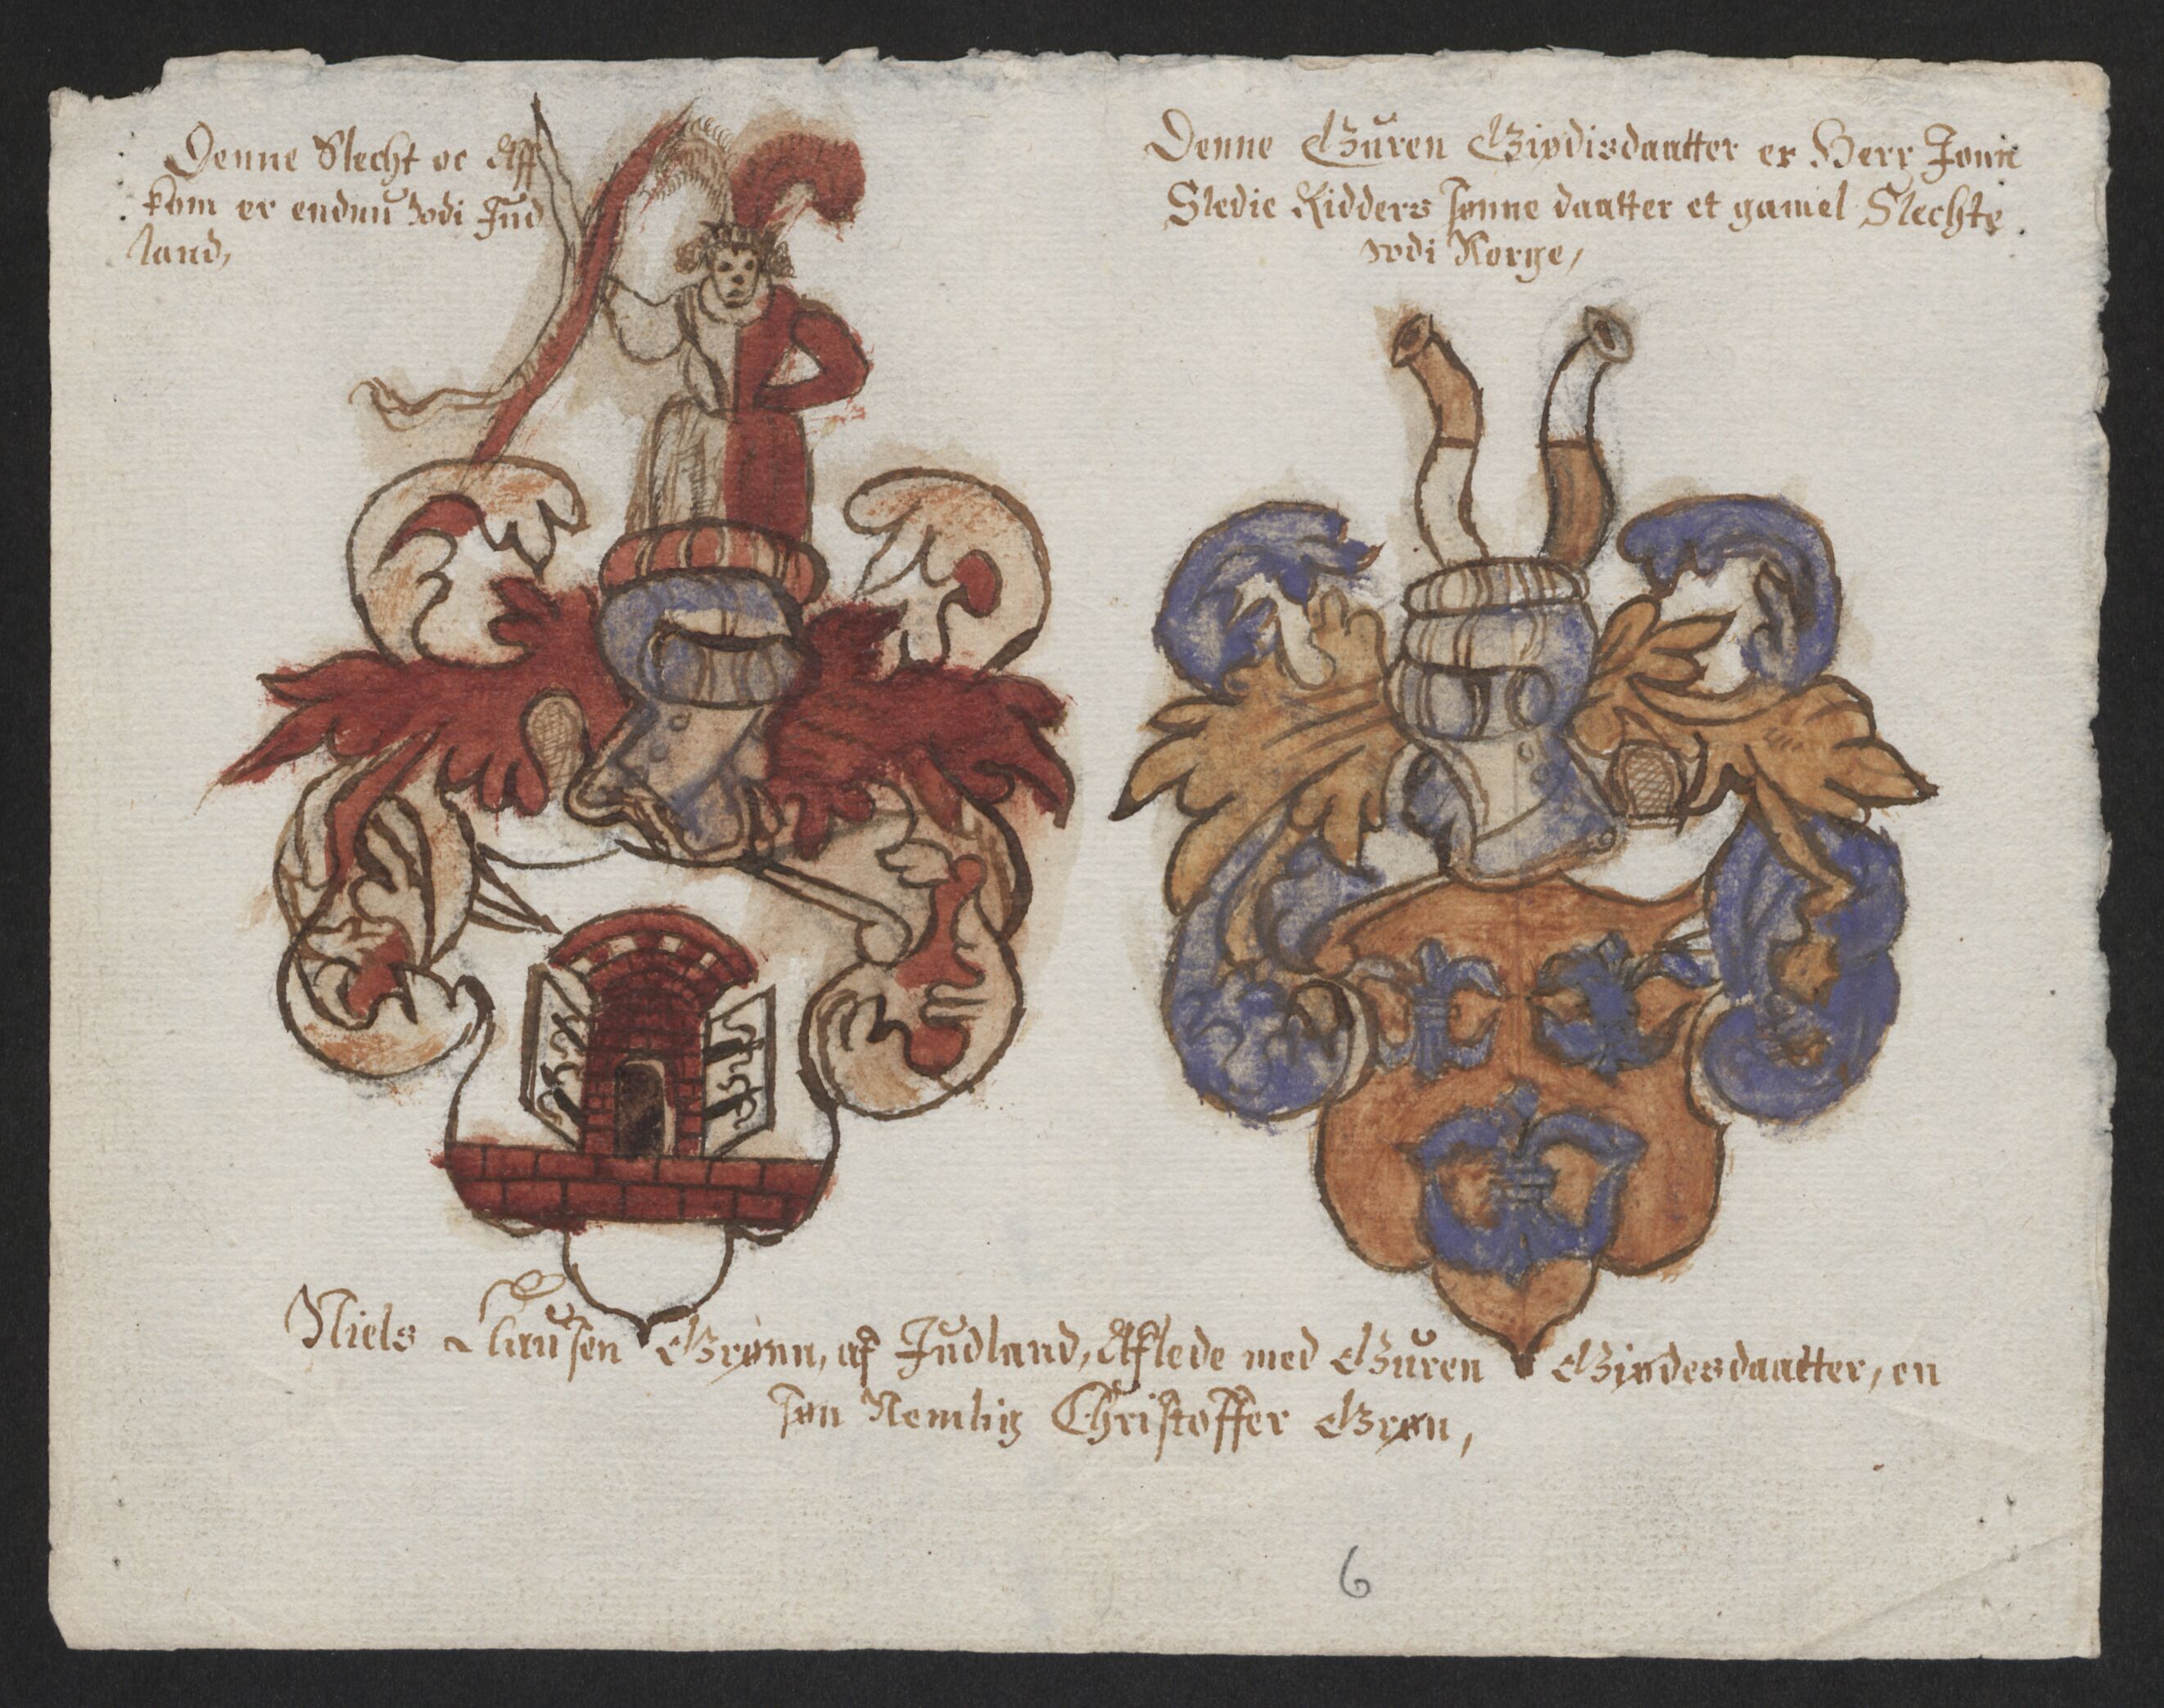 Denne Slecht oc Aff
kom er endnu udi Jud
land,
Denne Guren Giødisdaatter er Herr Jonn
Sledie Ridders sønne daatter et gamel Slechte
udi Norge,
Niels Clausen Grønn, af Judland, Aflede med Guren Giødesdaatter, en
søn Nemlig Christoffer Grøn,
6